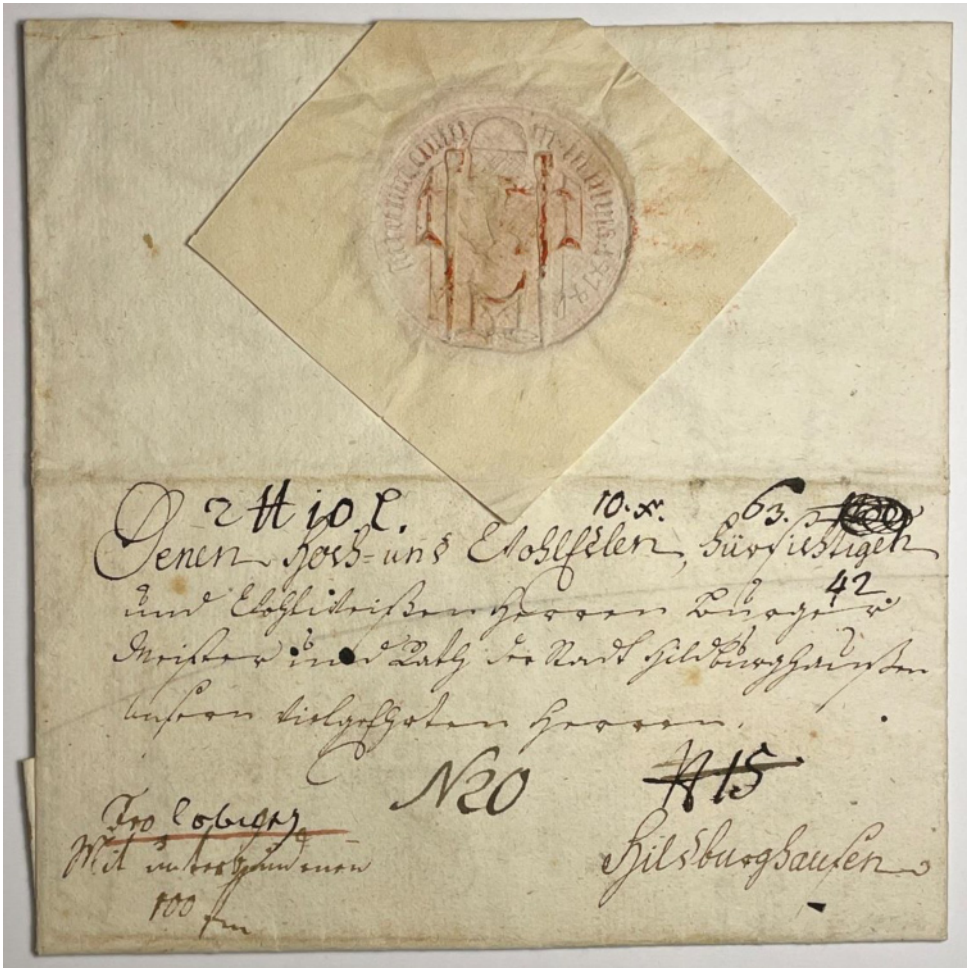 2 ℔ 10 l. 10. xr. 63.
Denen Hoch- und Wohledlen, Fürsichtigen
42
und Wohlweißen Herren Burger
Meister und Rath der Stadt Hildburghaußen
Unsern Vielgeehrten Herren.
N20
N 15
fro Cobigry
Mit
Hildburghausen
100